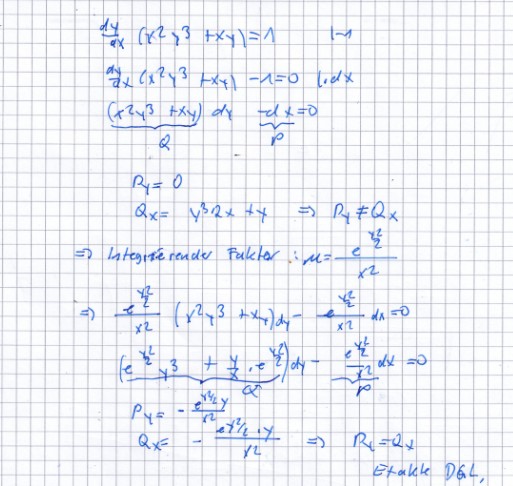 dy/dx (x²y³ + xy) = 1 |-1
dy/dx (x²y³ + xy) - 1 = 0 |·dx
(x²y³ + xy) dy - dx = 0
Q P
P_y = 0
Q_x = y³2x + y ⇒ P_y ≠ Q_x
⇒ Integrierender Faktor : μ = e^(y²/2)/x²
⇒ e^(y²/2)/x² (x²y³ + xy) dy - e^(y²/2)/x² dx = 0
(e^(y²/2) y³ + y/x · e^(y²/2)) dy - e^(y²/2)/x² dx = 0
Q P
P_y = - e^(y²/2) y/x²
Q_x = - e^(y²/2) · y/x² ⇒ P_y = Q_x
Exakte DGL,